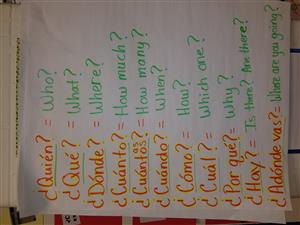 ¿Quién? = Who?
¿Qué? = What?
¿Dónde? = Where?
¿Cuánto? = How much?
¿Cuántos?as = How many?
¿Cuándo? = When?
¿Cómo? = How?
¿Cuál? = Which one?
¿Por qué? = Why?
¿Hay? = Is there? Are there?
¿Adónde vas? = Where are you going?